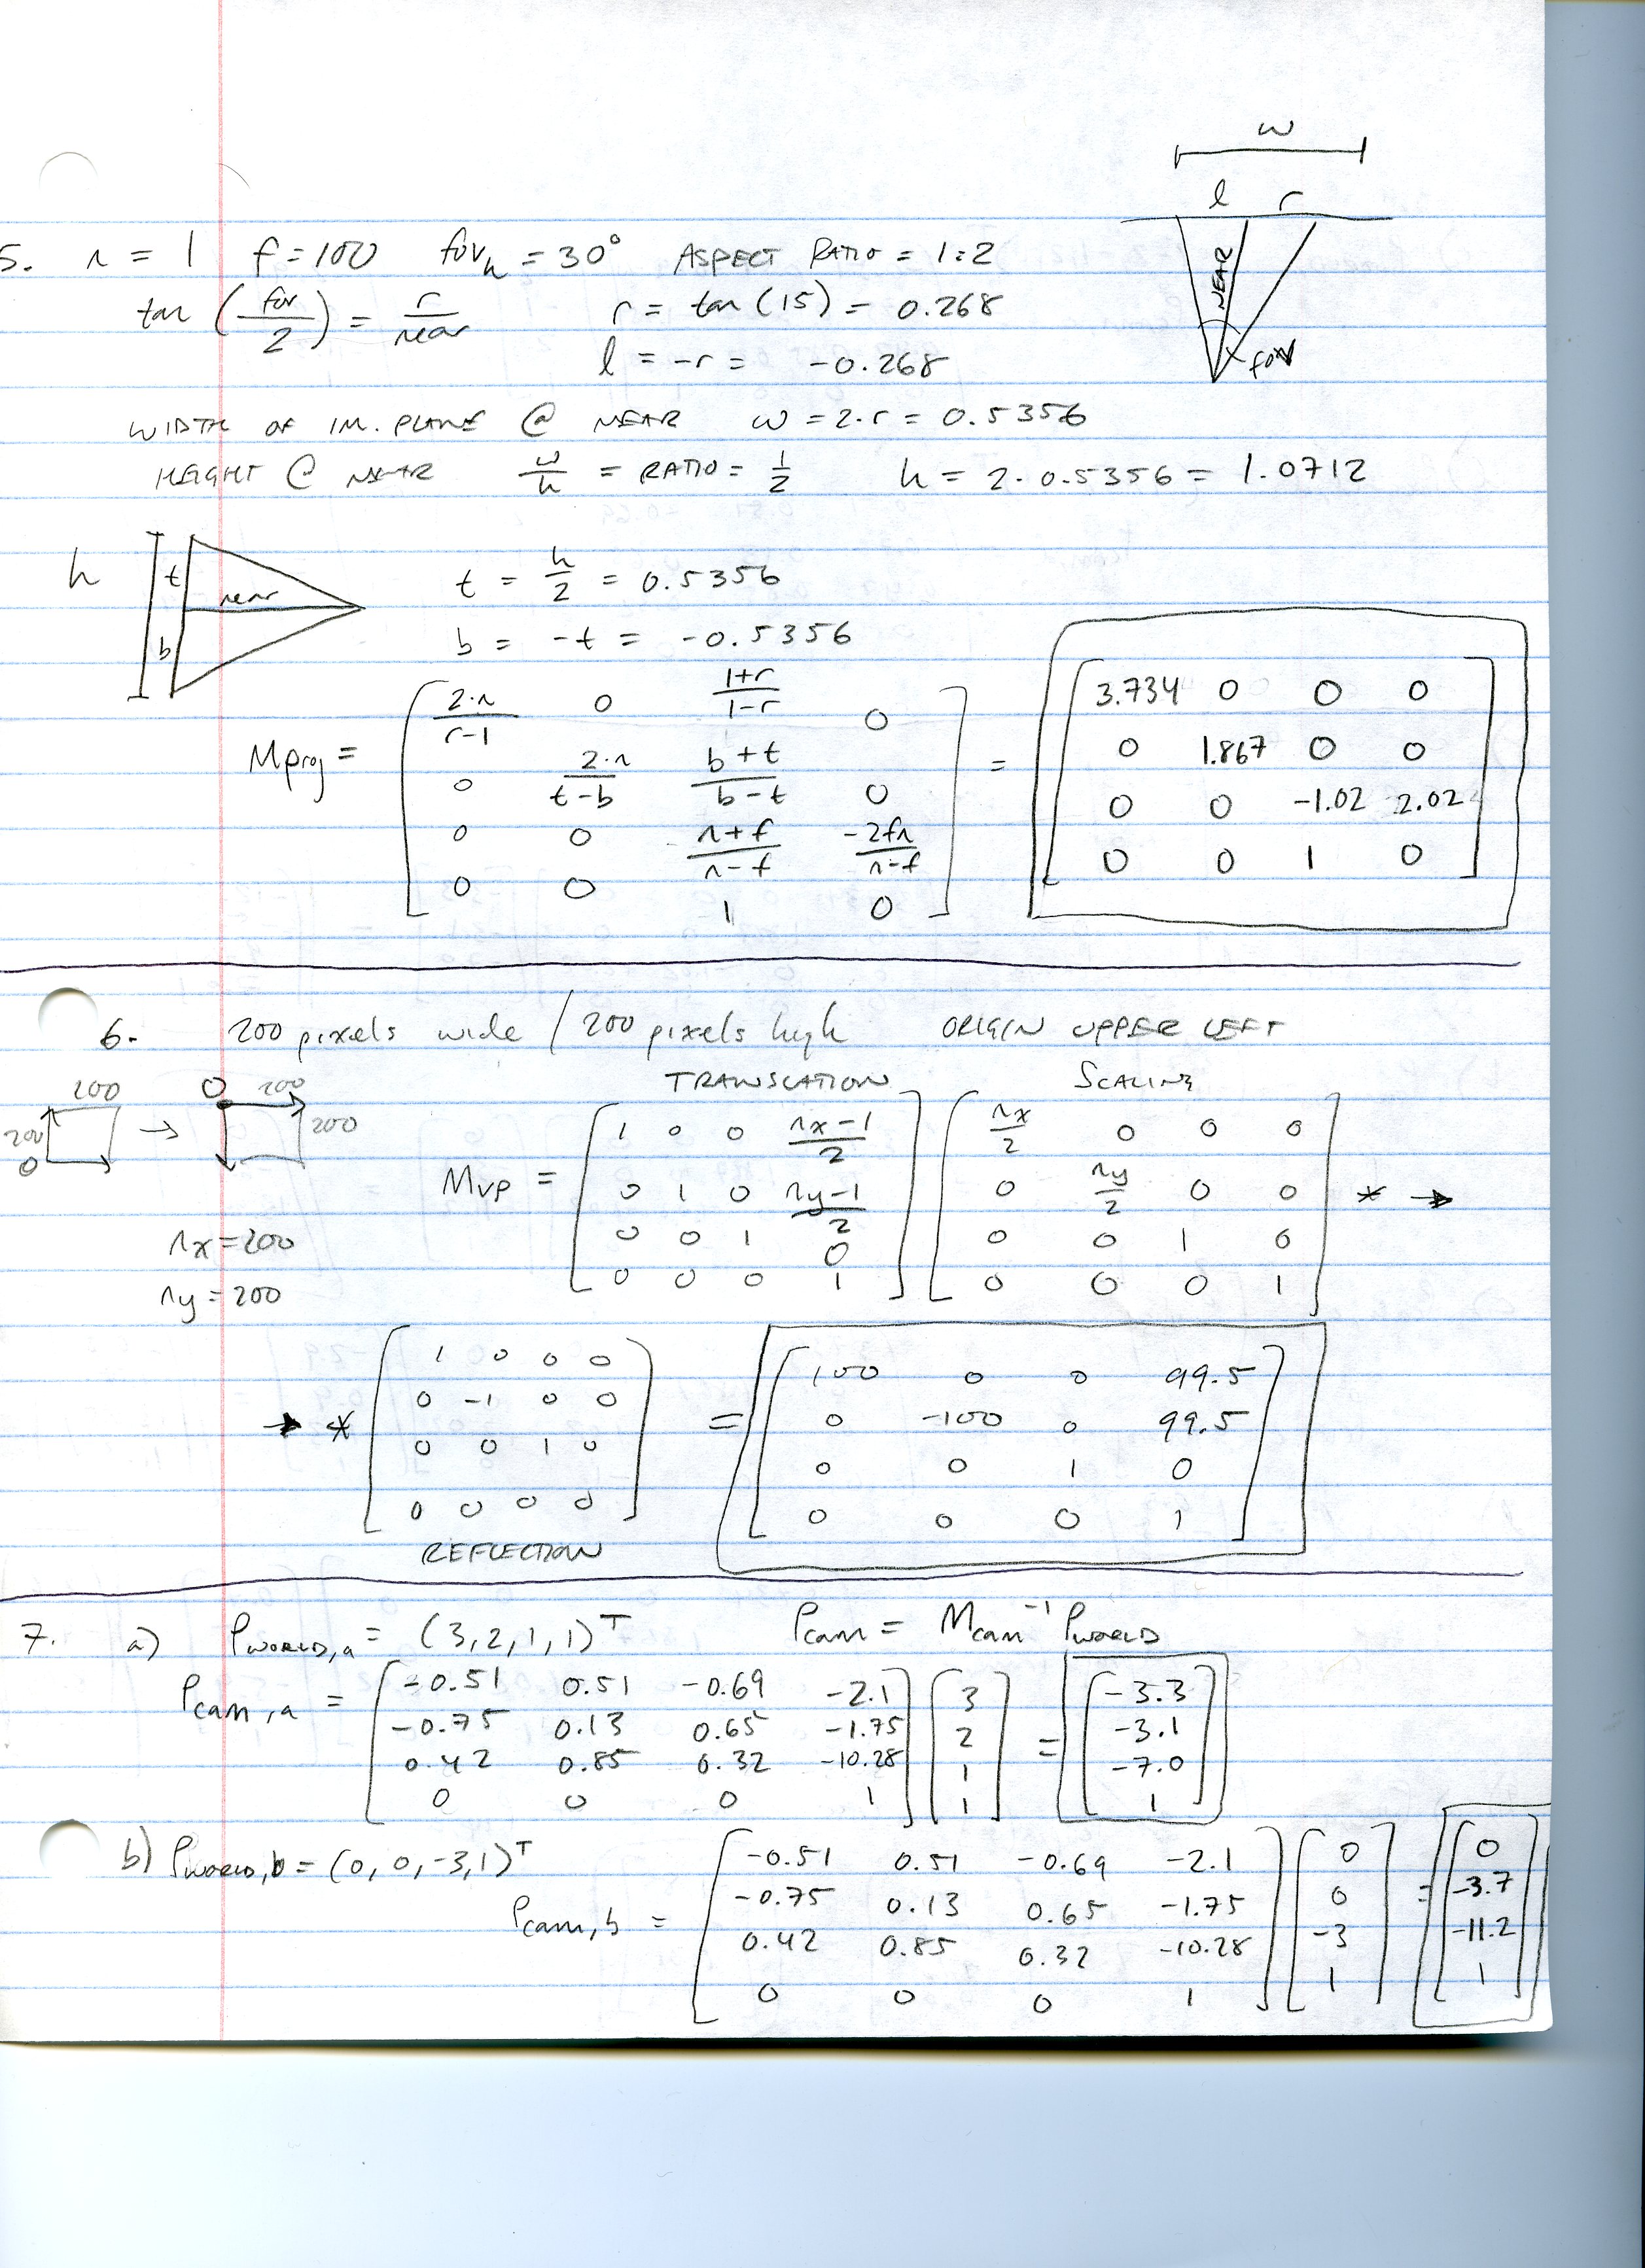 w
l r
NEAR
fov
5. n = 1 f=100 fovh = 30° ASPECT RATIO = 1:2
tan (fov/2) = r/near r = tan(15) = 0.268
l = -r = -0.268
WIDTH OF IM. PLANE @ NEAR w = 2·r = 0.5356
HEIGHT @ NEAR w/h = RATIO = 1/2 h = 2·0.5356 = 1.0712
h t near b
t = h/2 = 0.5356
b = -t = -0.5356
Mproj = [ 2·n/r-l 0 l+r/l-r 0 ] = [ 3.734 0 0 0 ]
[ 0 2·n/t-b b+t/b-t 0 ] [ 0 1.867 0 0 ]
[ 0 0 n+f/n-f -2fn/n-f ] [ 0 0 -1.02 2.02 ]
[ 0 0 1 0 ] [ 0 0 1 0 ]
6. 200 pixels wide / 200 pixels high ORIGIN UPPER LEFT
200 200 0 → 0 200 200
nx = 200
ny = 200
TRANSLATION SCALING
Mvp = [ 1 0 0 nx-1/2 ] [ nx/2 0 0 0 ] * →
[ 0 1 0 ny-1/2 ] [ 0 ny/2 0 0 ]
[ 0 0 1 0 ] [ 0 0 1 0 ]
[ 0 0 0 1 ] [ 0 0 0 1 ]
→ * [ 1 0 0 0 ] = [ 100 0 0 99.5 ]
[ 0 -1 0 0 ] [ 0 -100 0 99.5 ]
[ 0 0 1 0 ] [ 0 0 1 0 ]
[ 0 0 0 0 ] [ 0 0 0 1 ]
REFLECTION
7. a) PWORLD,a = (3,2,1,1)^T Pcam = Mcam^-1 PWORLD
Pcam,a = [ -0.51 0.51 -0.69 -2.1 ] [ 3 ] = [ -3.3 ]
[ -0.75 0.13 0.65 -1.75 ] [ 2 ] [ -3.1 ]
[ 0.42 0.85 0.32 -10.28 ] [ 1 ] [ -7.0 ]
[ 0 0 0 1 ] [ 1 ] [ 1 ]
b) PWORLD,b = (0, 0, -3, 1)^T
Pcam,b = [ -0.51 0.51 -0.69 -2.1 ] [ 0 ] = [ 0 ]
[ -0.75 0.13 0.65 -1.75 ] [ 0 ] [ -3.7 ]
[ 0.42 0.85 0.32 -10.28 ] [ -3 ] [ -11.2 ]
[ 0 0 0 1 ] [ 1 ] [ 1 ]